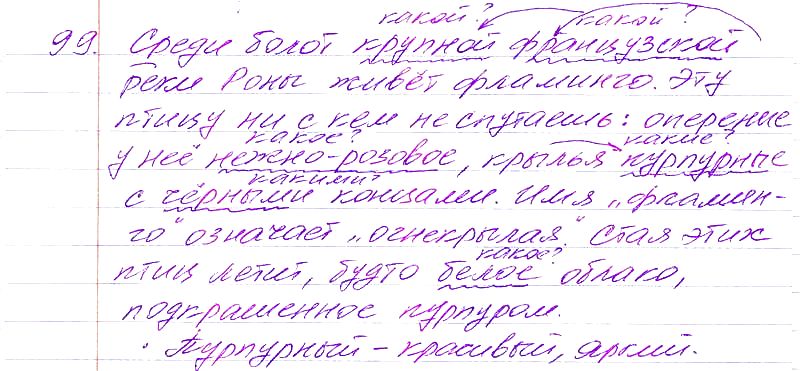 какой? какой?
99. Среди болот крупной французской
реки Роны живёт фламинго. Эту
птицу ни с кем не спутаешь: оперение
какое? какие?
у неё нежно-розовое, крылья пурпурные
какими?
с чёрными концами. Имя „фламин-
го" означает „огнекрылая." Стая этих
какое?
птиц летит, будто белое облако,
подкрашенное пурпуром.
Пурпурный – красивый, яркий.